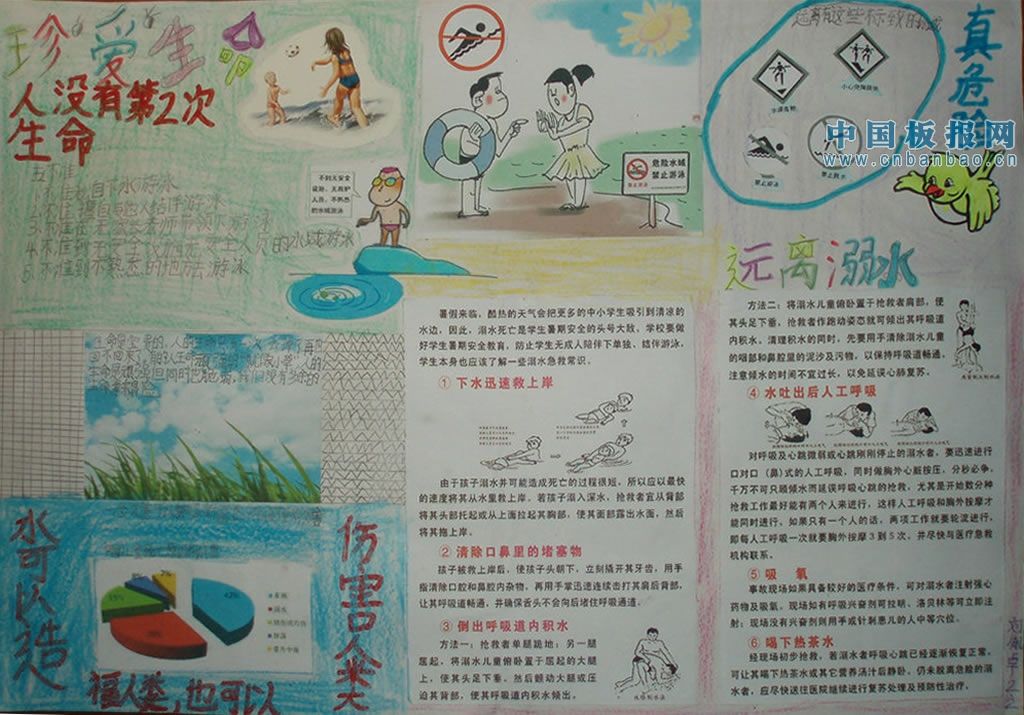 珍爱生命
人没有第2次
生命
五不准
1.不准私自下水游泳
3.不准在无家长老师带领下游泳
5.不准到不熟悉的地方去游泳
不到无安全
设施、无救护
人员、不熟悉
的水域游泳
危险水域
禁止游泳
远离有这些标致的地域
水深危险
小心突降跌伤
禁止游泳
禁止跳水
真危险
中国板报网
www.cnbanbao.cn
远离溺水
水可以造
福人类，也可以
伤害人类
42%
暑假来临，酷热的天气会把更多的中小学生吸引到清凉的
水边，因此，溺水死亡是学生暑期安全的头号大敌，学校要做
好学生暑期安全教育，防止学生无成人陪伴下单独、结伴游泳，
学生本身也应该了解一些溺水急救常识。
① 下水迅速救上岸
由于孩子溺水并可能造成死亡的过程很短，所以应以最快
的速度将其从水里救上岸。若孩子溺入深水，抢救者宜从背部
将其头部托起或从上面拉起其胸部，使其面部露出水面，然后
将其拖上岸。
② 清除口鼻里的堵塞物
孩子被救上岸后，使孩子头朝下，立刻撬开其牙齿，用手
指清除口腔和鼻腔内杂物，再用手掌迅速连续击打其肩后背部，
让其呼吸道畅通，并确保舌头不会向后堵住呼吸通道。
③ 倒出呼吸道内积水
方法一：抢救者单腿跪地；另一腿
屈起，将溺水儿童俯卧置于屈起的大腿
上，使其头足下垂。然后颤动大腿或压
迫其背部，使其呼吸道内积水倾出。
方法二：将溺水儿童俯卧置于抢救者肩部，使
其头足下垂，抢救者作跑动姿态就可倾出其呼吸道
内积水。清理积水的同时，先要用手清除溺水儿童
的咽部和鼻腔里的泥沙及污物，以保持呼吸道畅通，
注意倾水的时间不宜过长，以免延误心肺复苏。
④ 水吐出后人工呼吸
对呼吸及心跳微弱或心跳刚刚停止的溺水者，要迅速进行
口对口（鼻）式的人工呼吸，同时做胸外心脏按压，分秒必争，
千万不可只顾倾水而延误呼吸心跳的抢救，尤其是开始数分种
抢救工作最好能有两个人来进行，这样人工呼吸和胸外按摩才
能同时进行，如果只有一个人的话，两项工作就要轮流进行，
即每人工呼吸一次就要胸外按摩3到5次，并尽快与医疗急救
机构联系。
⑤ 吸 氧
事故现场如果具备较好的医疗条件，可对溺水者注射强心
药物及吸氧，现场如有呼吸兴奋剂可拉明、洛贝林等可立即注
射；现场没有兴奋剂则用手或针刺患儿的人中等穴位。
⑥ 喝下热茶水
经现场初步抢救，若溺水者呼吸心跳已经逐渐恢复正常，
可让其喝下热茶水或其它营养汤汁后静卧。仍未脱离危险的溺
水者，应尽快送往医院继续进行复苏处理及预防性治疗。